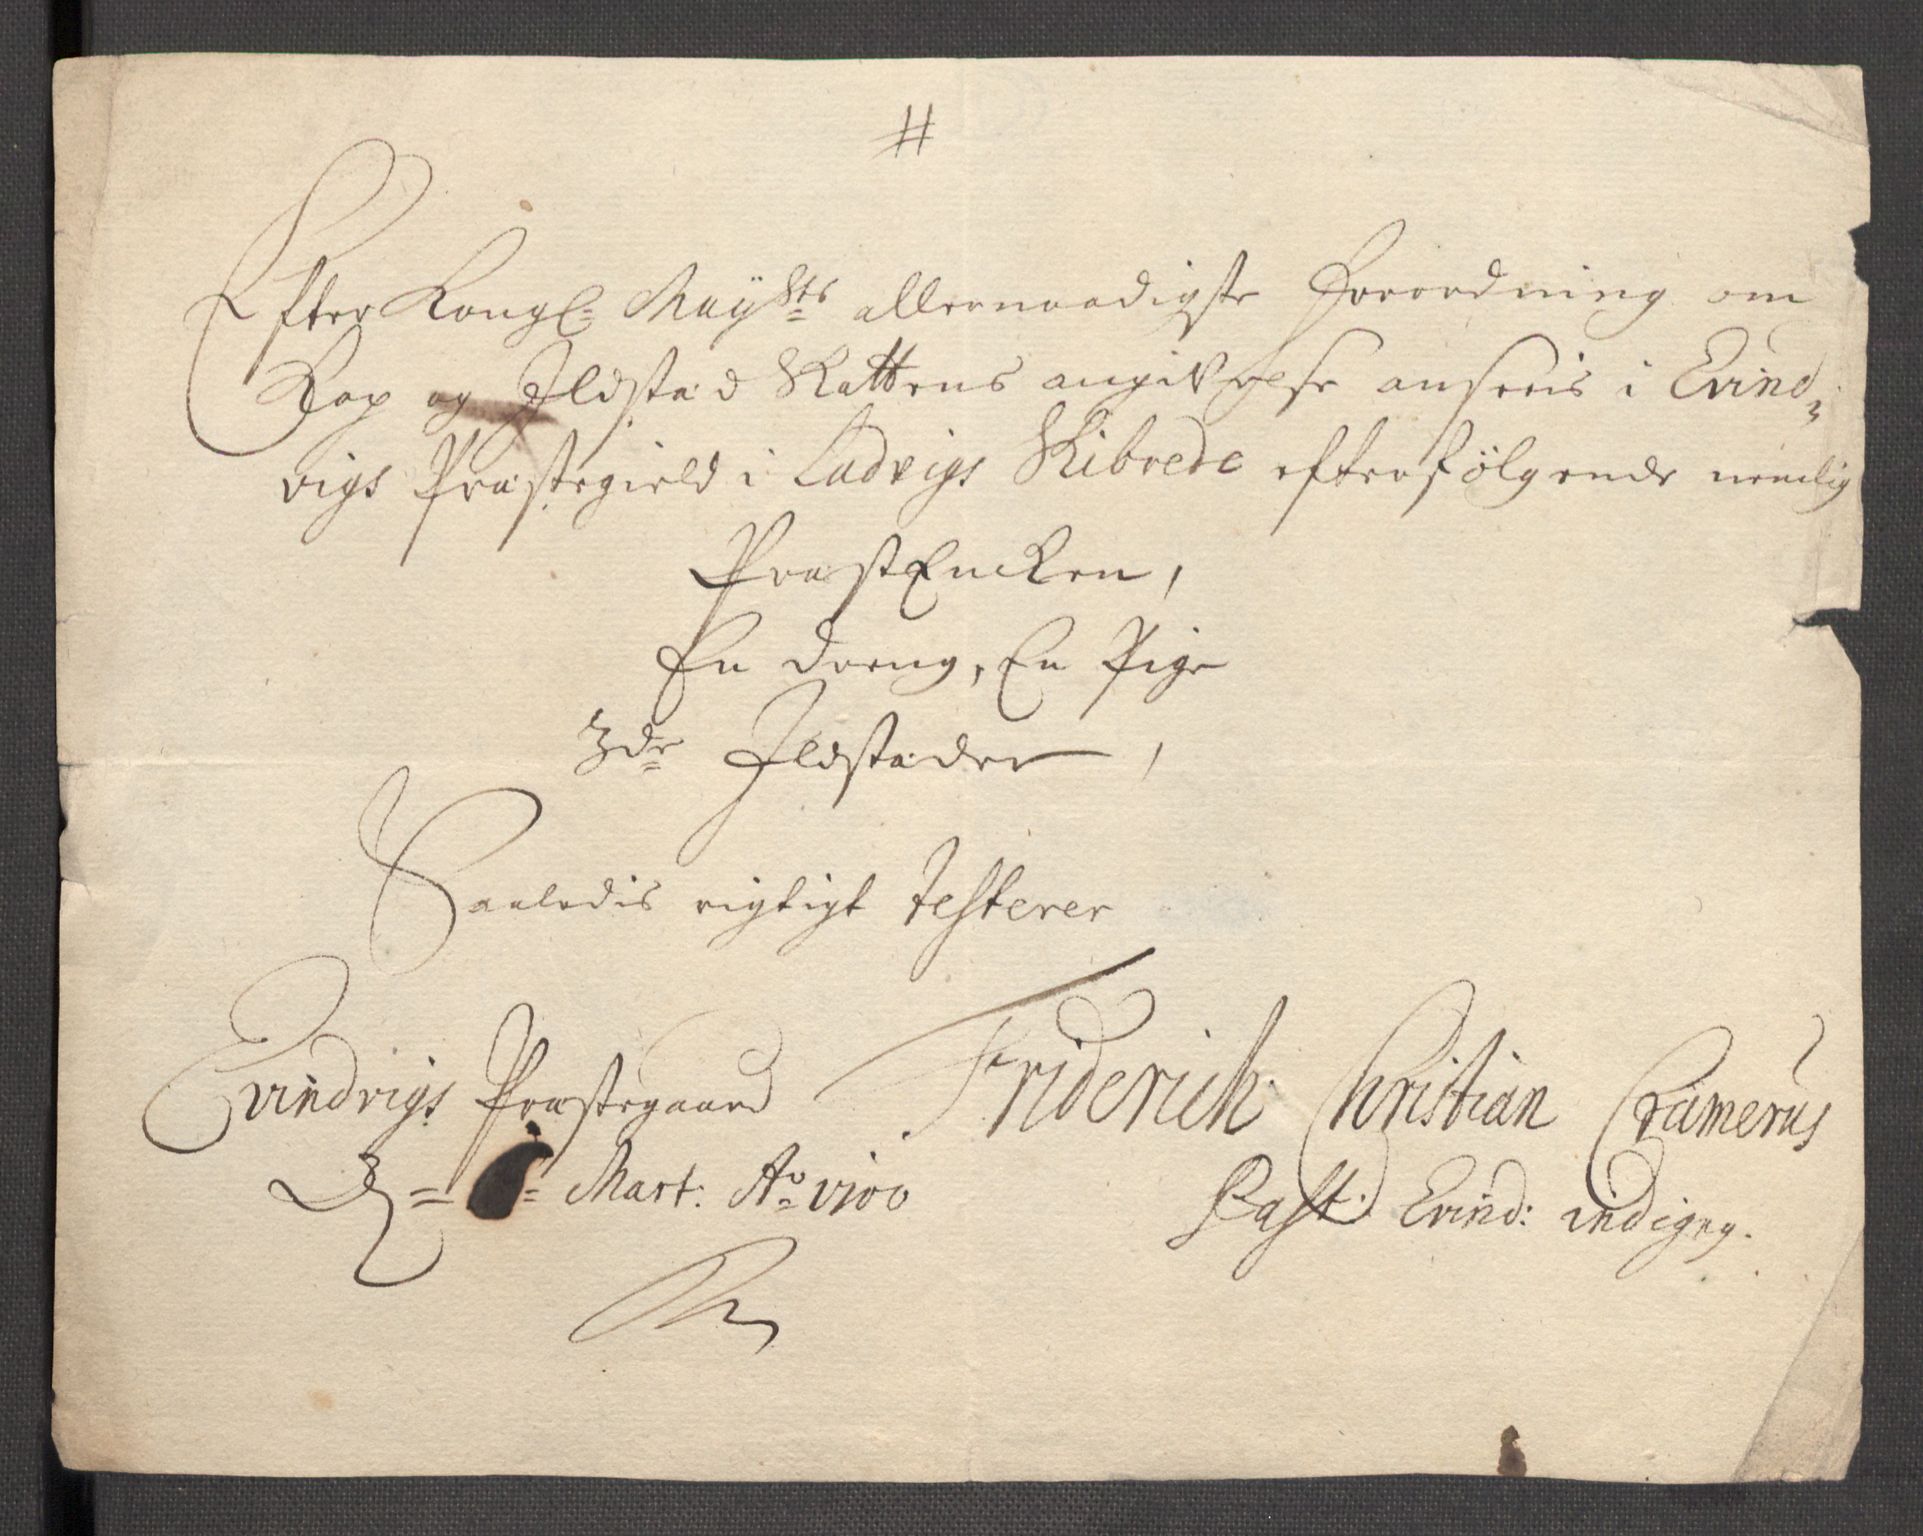 #
Efter Kongl= Maÿsts allernaadigste Forordning om
Kop og Ildstæd Skattens angivelse ansees i Evind,
vigs Præstegield i Ladvigs Skibrede efterfølgende nemlig
PræstEncken,
En dreng, En Pige
3de Ildstæder,
Saaledis rigtigt testerer
Evindvigs Præstegaard
Friderich Christian Cramerus
D = = Mart: Ao 1700
Past. Evind: indigng.